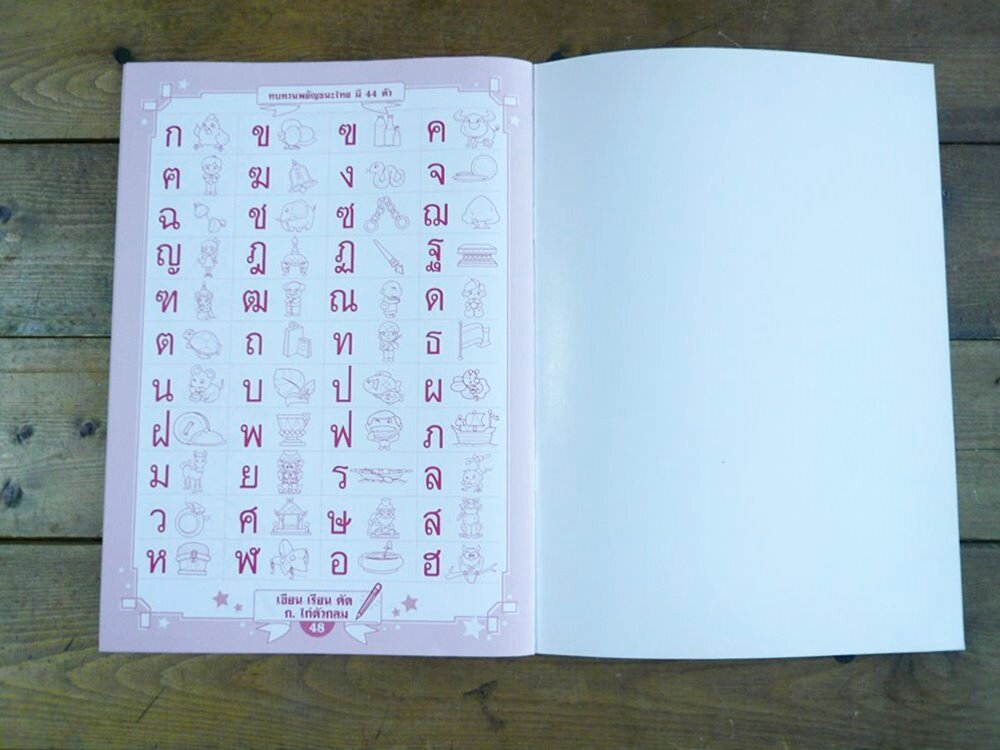 ทบทวนพยัญชนะไทย มี 44 ตัว
ก ข ฃ ค
ฅ ฆ ง จ
ฉ ช ซ ฌ
ญ ฎ ฏ ฐ
ฑ ฒ ณ ด
ต ถ ท ธ
น บ ป ผ
ฝ พ ฟ ภ
ม ย ร ล
ว ศ ษ ส
ห ฬ อ ฮ
เขียน เรียน คัด
ก. ไก่ตัวกลม
48